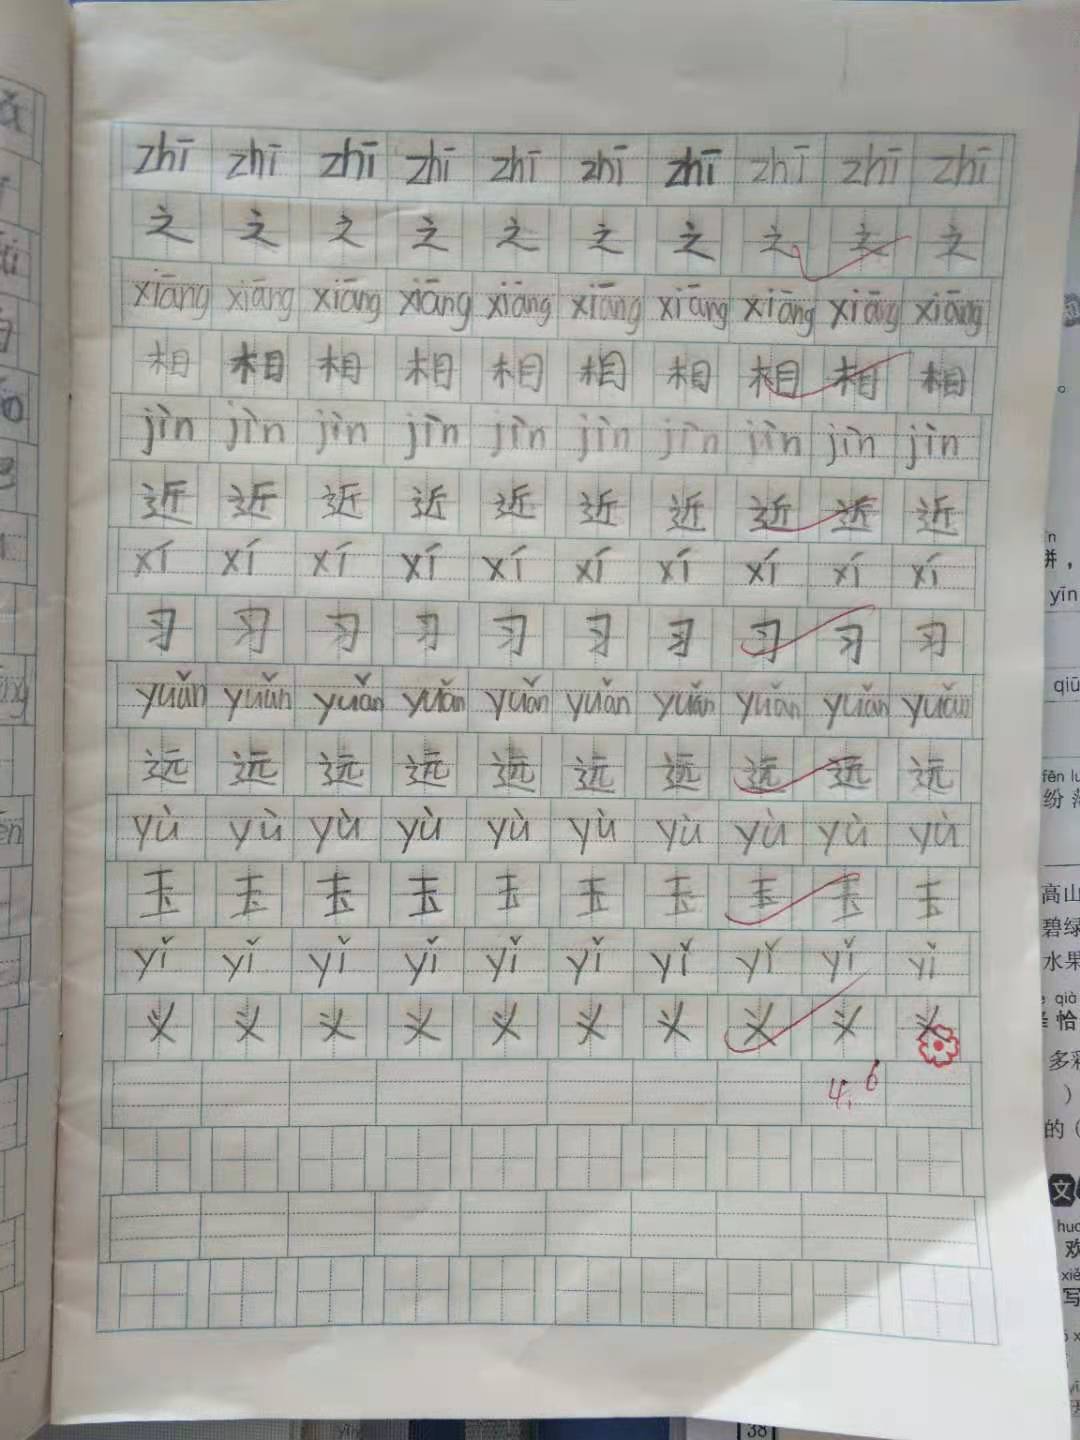 zhī zhī zhī zhī zhī zhī zhī zhī zhī zhī
之 之 之 之 之 之 之 之 之 之
xiāng xiāng xiāng xiāng xiāng xiāng xiāng xiāng xiāng xiāng
相 相 相 相 相 相 相 相 相 相
jìn jìn jìn jìn jìn jìn jìn jìn jìn jìn
近 近 近 近 近 近 近 近 近 近
xí xí xí xí xí xí xí xí xí xí
习 习 习 习 习 习 习 习 习 习
yuǎn yuǎn yuǎn yuǎn yuǎn yuǎn yuǎn yuǎn yuǎn yuǎn
远 远 远 远 远 远 远 远 远 远
yù yù yù yù yù yù yù yù yù yù
玉 玉 玉 玉 玉 玉 玉 玉 玉 玉
yǐ yǐ yǐ yǐ yǐ yǐ yǐ yǐ yǐ yǐ
义 义 义 义 义 义 义 义 义 义
4.6
yīn
qiū
fēn
纷
高山
碧绿
水果
qià
恰
多彩
)
的(
文
欢
写
38